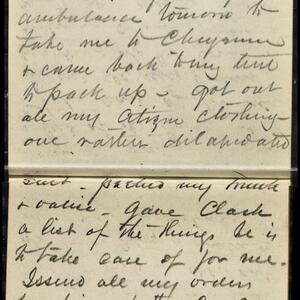 ambulance tomoro to
take me to Cheyenne
& came back to my tent
to pack up - got out
all my citizen clothing -
one rather dilapidated
suit - packed my trunk
& valise - Gave Clark
a list of the things he is
to take care of for me.
Issued all my orders